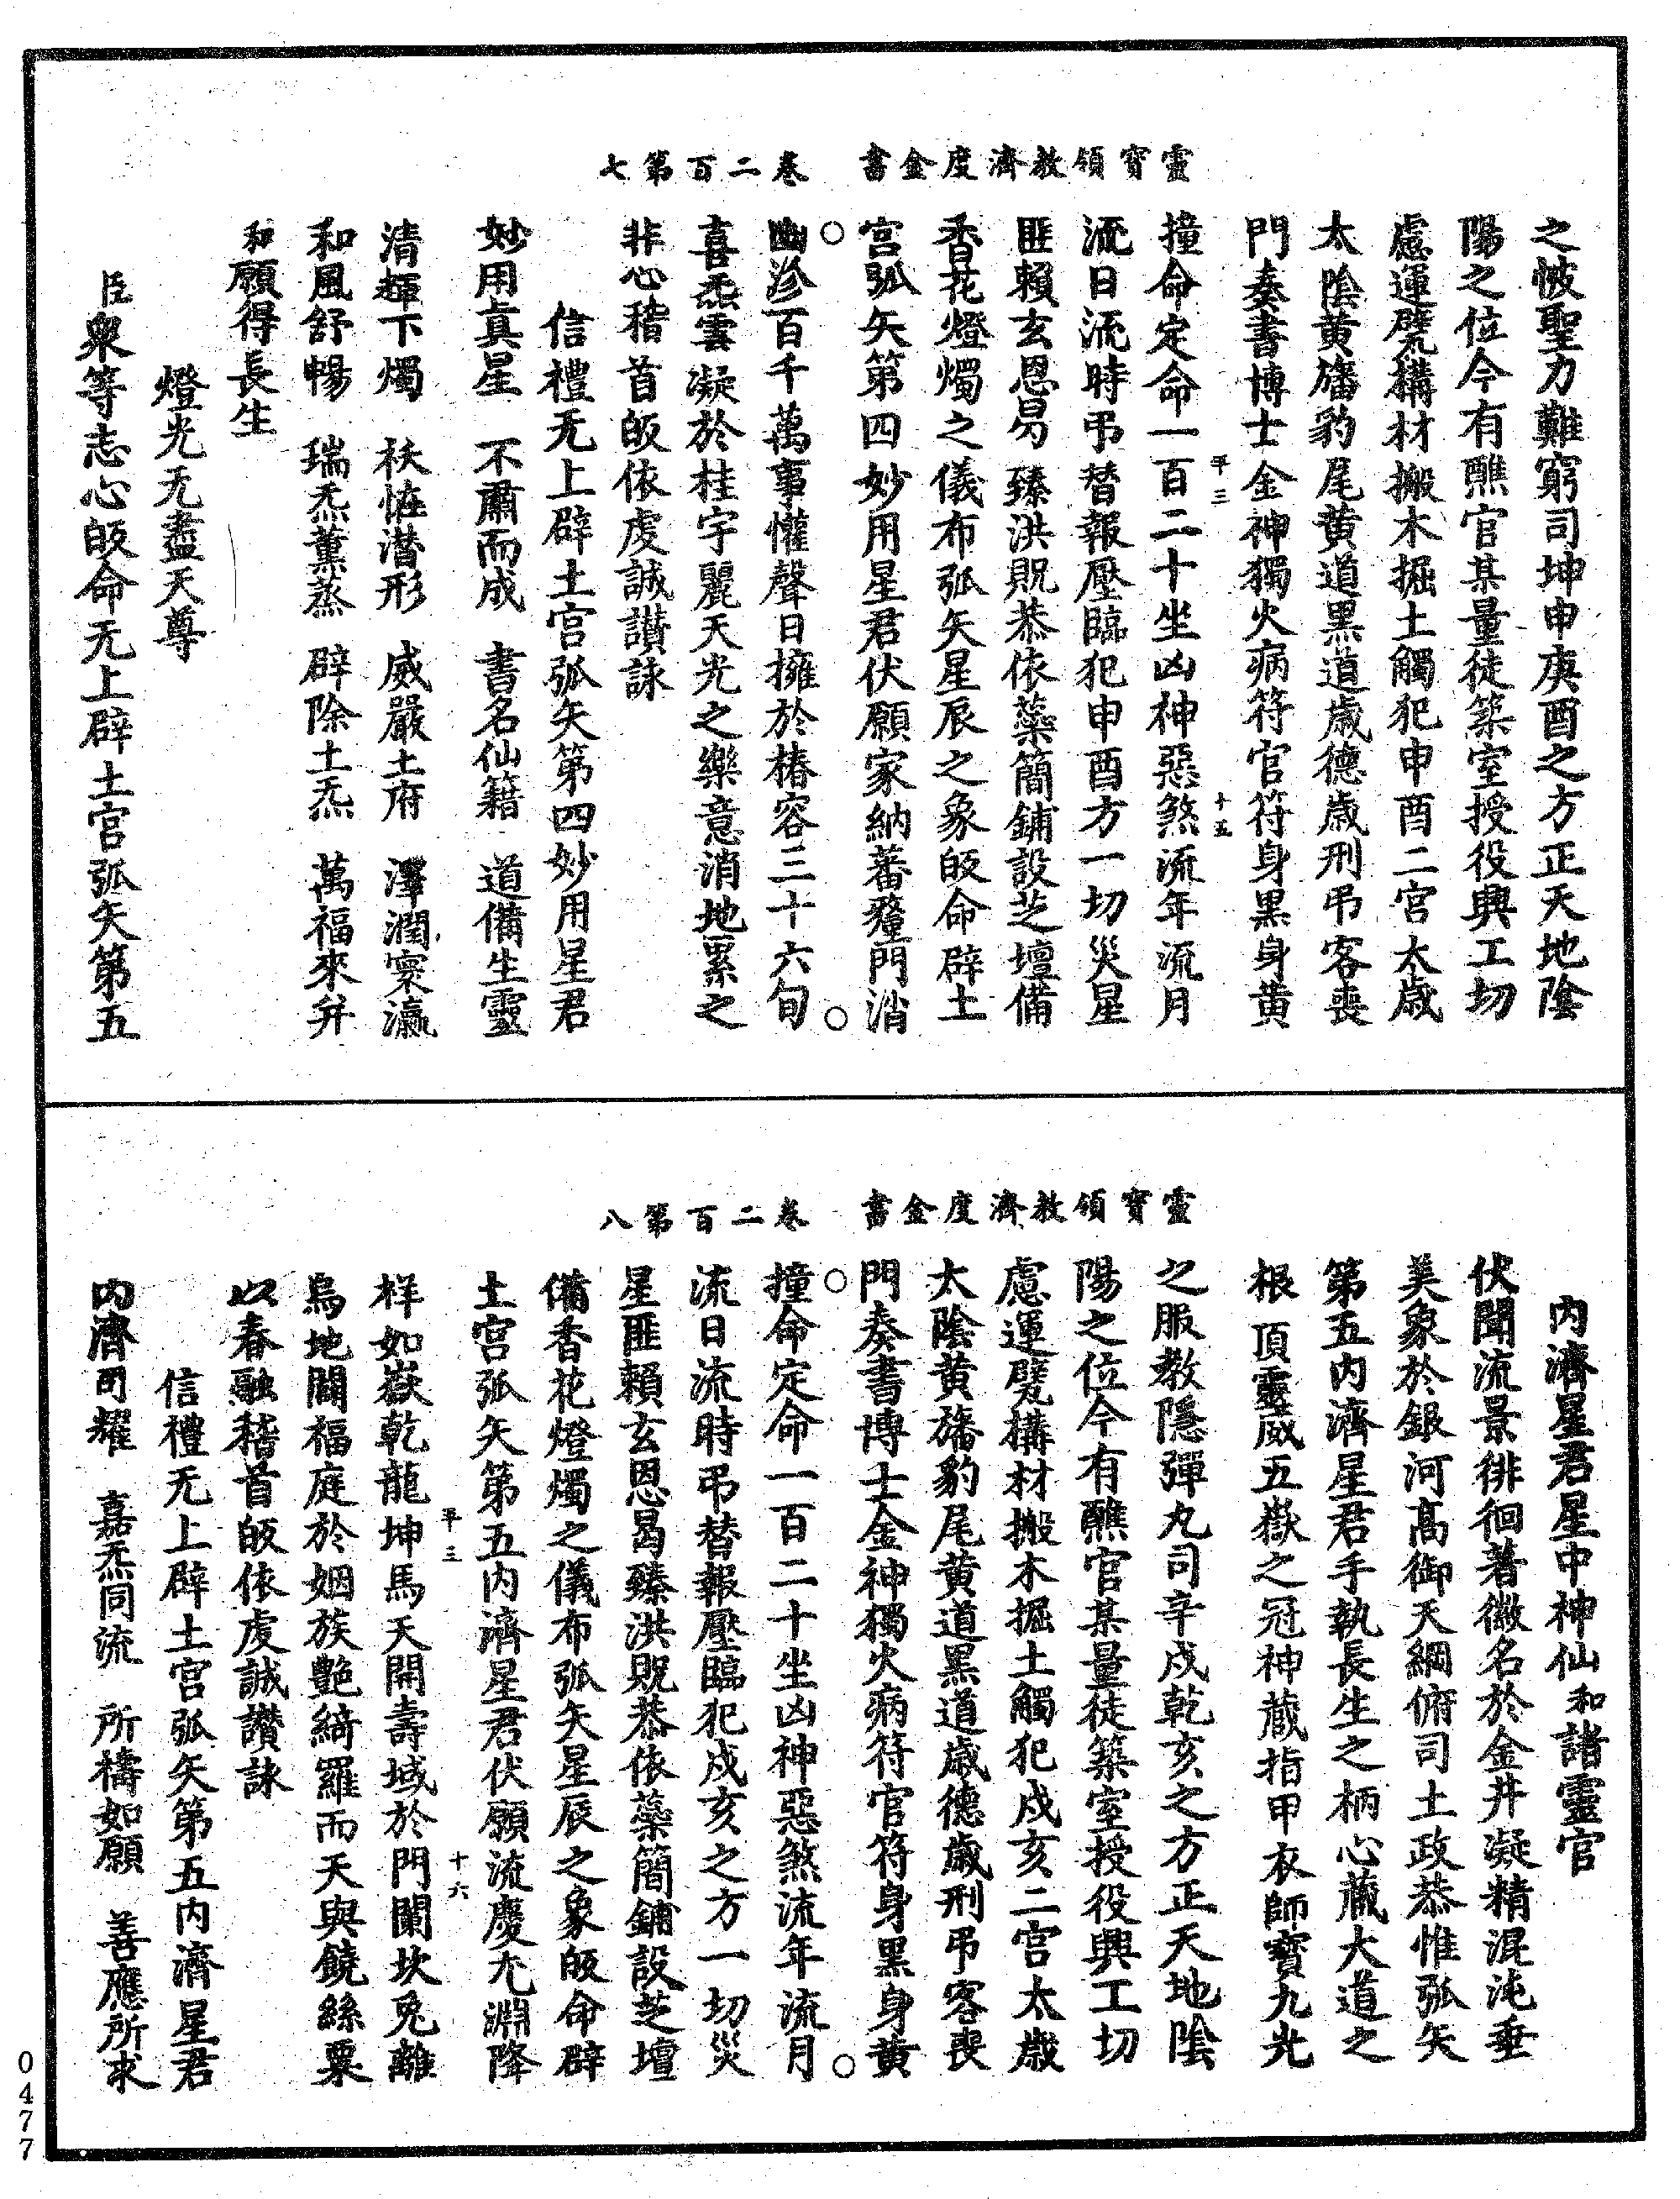 靈寶領教濟度金書　卷二百第七
之帔聖力難窮司坤申庚酉之方正天地陰
陽之位今有醮官某量徒築室授役興工切
慮運甓搆材搬木掘土觸犯申酉二宮太歲
太陰黃旛豹尾黃道黑道歲德歲刑弔客喪
門奏書博士金神獨火病符官符身黑身黃
撞命定命一百二十坐凶神惡煞流年流月
平三　十五
流日流時弔替報壓臨犯申酉方一切災星
匪賴玄恩曷臻洪貺恭依蘂簡鋪設芝壇備
香花燈燭之儀布弧矢星辰之象皈命辟土
宮弧矢第四妙用星君伏願家納蕃釐門消
幽沴百千萬事懽聲日擁於椿容三十六旬
喜炁雲凝於桂宇麗天光之樂意消地累之
非心稽首皈依虔誠讃詠
信禮无上辟土宮弧矢第四妙用星君
妙用眞星　不肅而成　書名仙籍　道備生靈
清輝下燭　祅恠潜形　威嚴土府　澤潤寰瀛
和風舒暢　瑞炁薰蒸　辟除土炁　萬福來幷
和願得長生
燈光无盡天尊
臣衆等志心皈命无上辟土宮弧矢第五
靈寶領教濟度金書　卷二百第八
內濟星君星中神仙和諸靈官
伏聞流景徘徊著微名於金井凝精混沌垂
美象於銀河高御天綱俯司土政恭惟弧矢
第五內濟星君手執長生之柄心藏大道之
根頂靈威五嶽之冠神藏指甲衣師寶九光
之服教隱彈丸司辛戌乾亥之方正天地陰
陽之位今有醮官某量徒築室授役興工切
慮運甓搆材搬木掘土觸犯戌亥二宮太歲
太陰黃旛豹尾黃道黑道歲德歲刑弔客喪
門奏書博士金神獨火病符官符身黑身黃
撞命定命一百二十坐凶神惡煞流年流月
流日流時弔替報壓臨犯戌亥之方一切災
星匪賴玄恩曷臻洪貺恭依蘂簡鋪設芝壇
備香花燈燭之儀布弧矢星辰之象皈命辟
土宮弧矢第五內濟星君伏願流慶无淵降
平三　十六
祥如嶽乾龍坤馬天開壽域於門闌坎兎離
烏地闢福庭於姻族艶綺羅而天與饒絲粟
以春融稽首皈依虔誠讃詠
信禮无上辟土宮弧矢第五內濟星君
內濟明耀　嘉炁同流　所檮如願　善應所求
0477